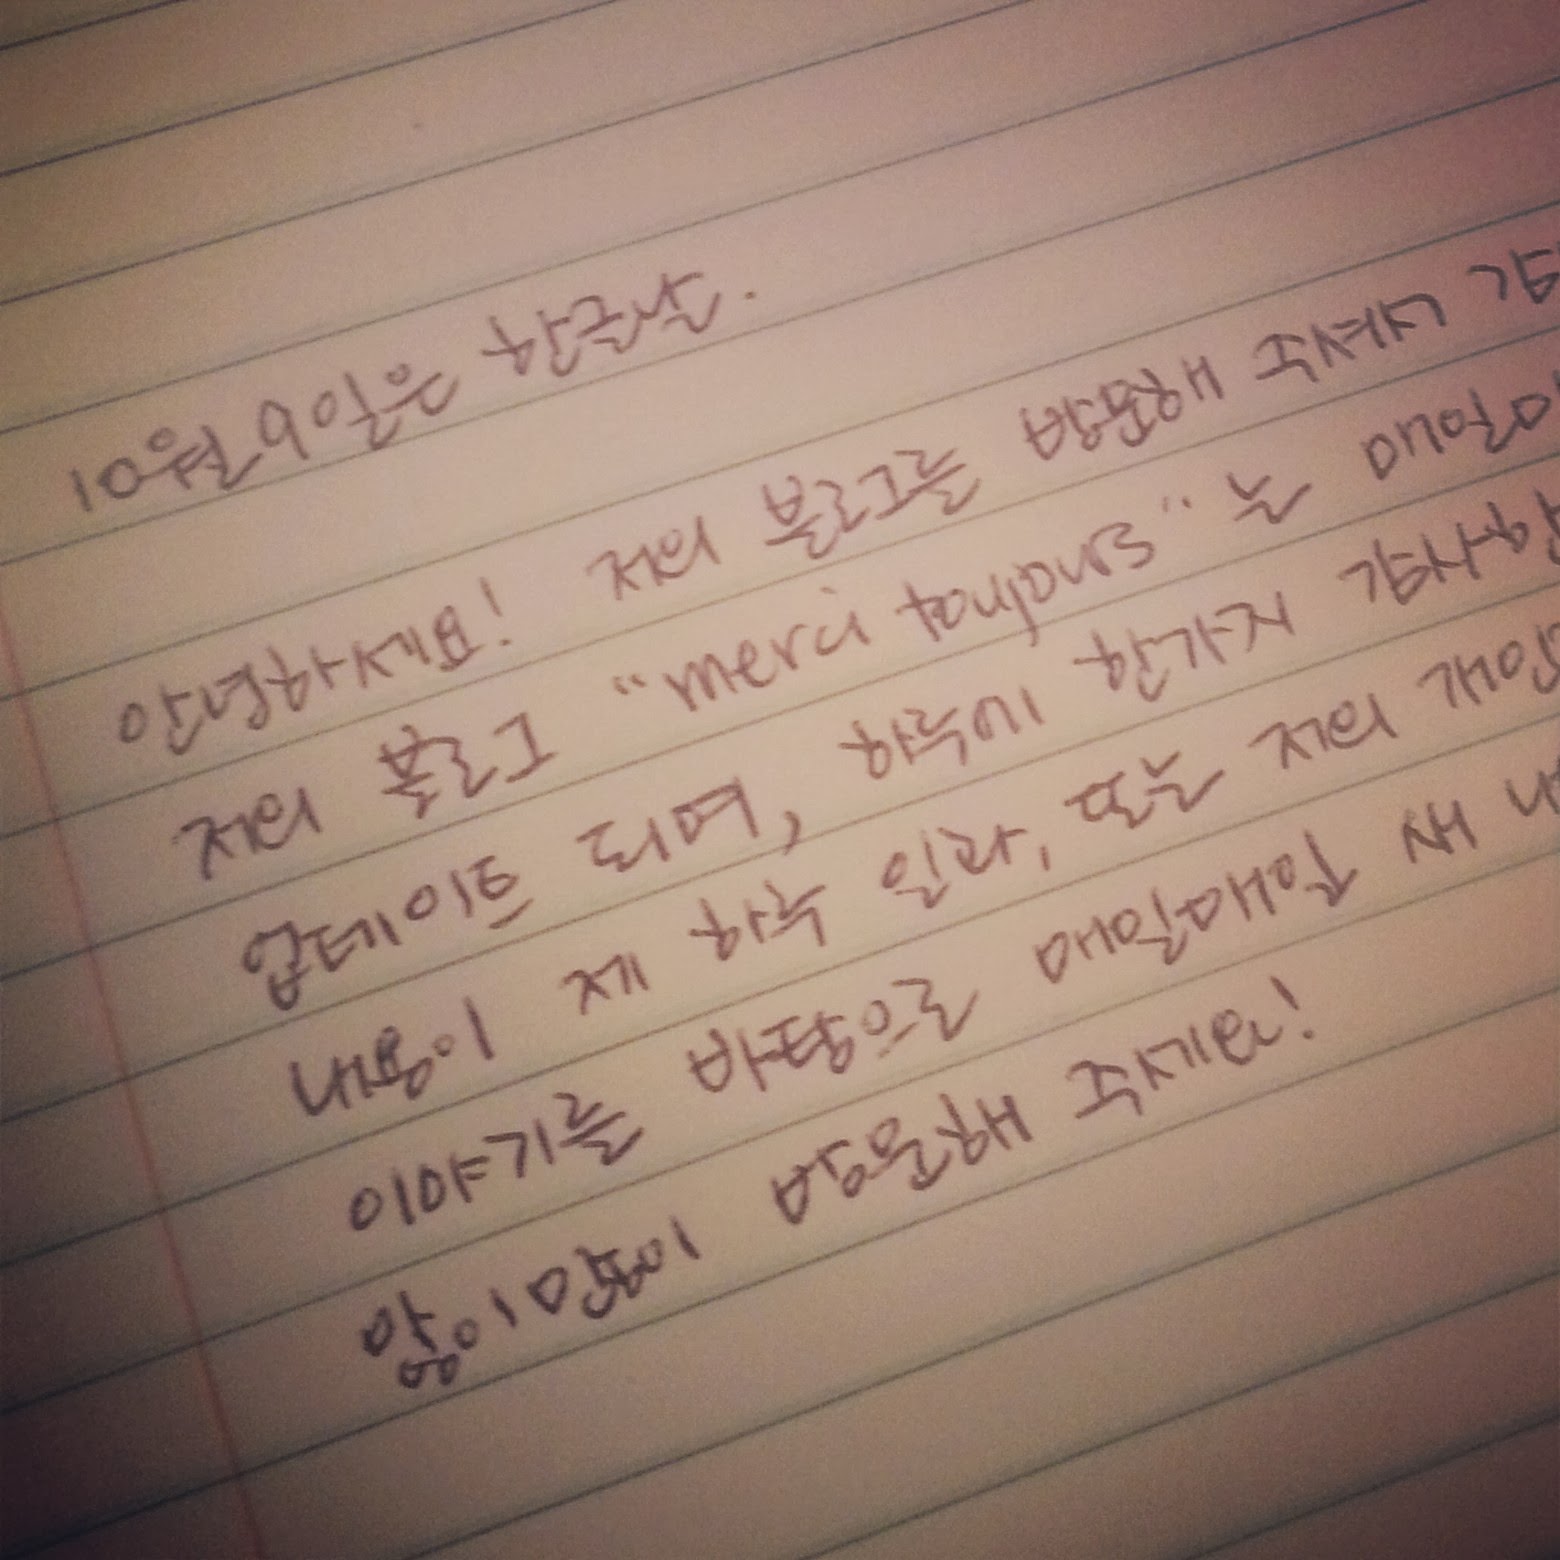 10월 9일은 한글날.
안녕하세요! 저의 블로그를 방문해 주셔서
저의 블로그 "merci toujours"는 매일
업데이트 되며, 하루에 한가지 감사한
내용이 제 하루 일과, 또는 저의 개인
이야기를 바탕으로 매일매일 새
많이많이 방문해 주세요!